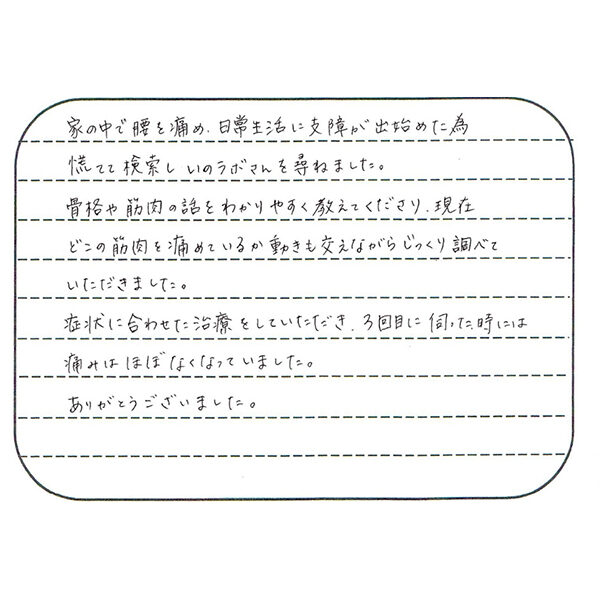 家の中で腰を痛め、日常生活に支障が出始めた為
慌てて検索し いのラボさんを尋ねました。
骨格や筋肉の話をわかりやすく教えてくださり、現在
どこの筋肉を痛めているか動きも交えながらじっくり調べて
いただきました。
症状に合わせた治療をしていただき、3回目に伺った時には
痛みはほぼなくなっていました。
ありがとうございました。